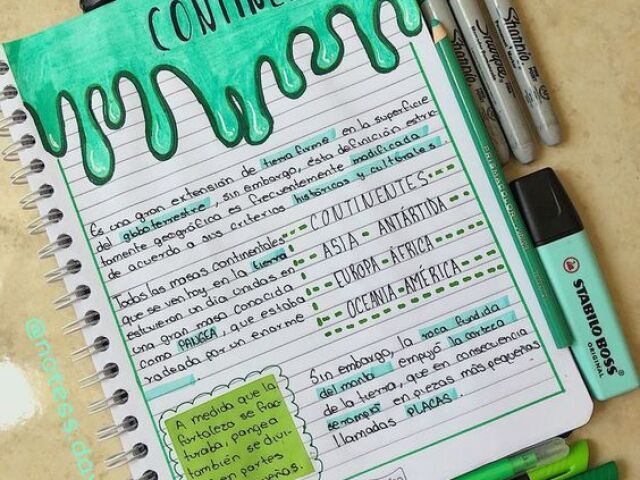 CONTINEN
Es una gran extensión de tierra firme en la superficie
del globo terrestre, sin embargo, ésta definición estric-
tamente geográfica es frecuentemente modificada
de acuerdo a sus criterios históricos y culturales.
Todas las masas continentales
que se ven hoy en la tierra
estuvieron un día unidas en
una gran masa conocida
como PANGEA, que estaba
rodeada por un enorme
CONTINENTES
ASIA - ANTÁRTIDA
EUROPA - ÁFRICA
OCEANIA - AMÉRICA
Sin embargo, la roca fundida
del manto empujó la corteza
de la tierra, que en consecuencia
se rompio en piezas más pequeñas
llamadas PLACAS.
A medida que la
fortaleza se frac-
turaba, pangea
también se divi-
en partes
@notess.da
Sharpie
Sharpie
Sharpie
PRISMACOLOR
STABILO BOSS
ORIGINAL